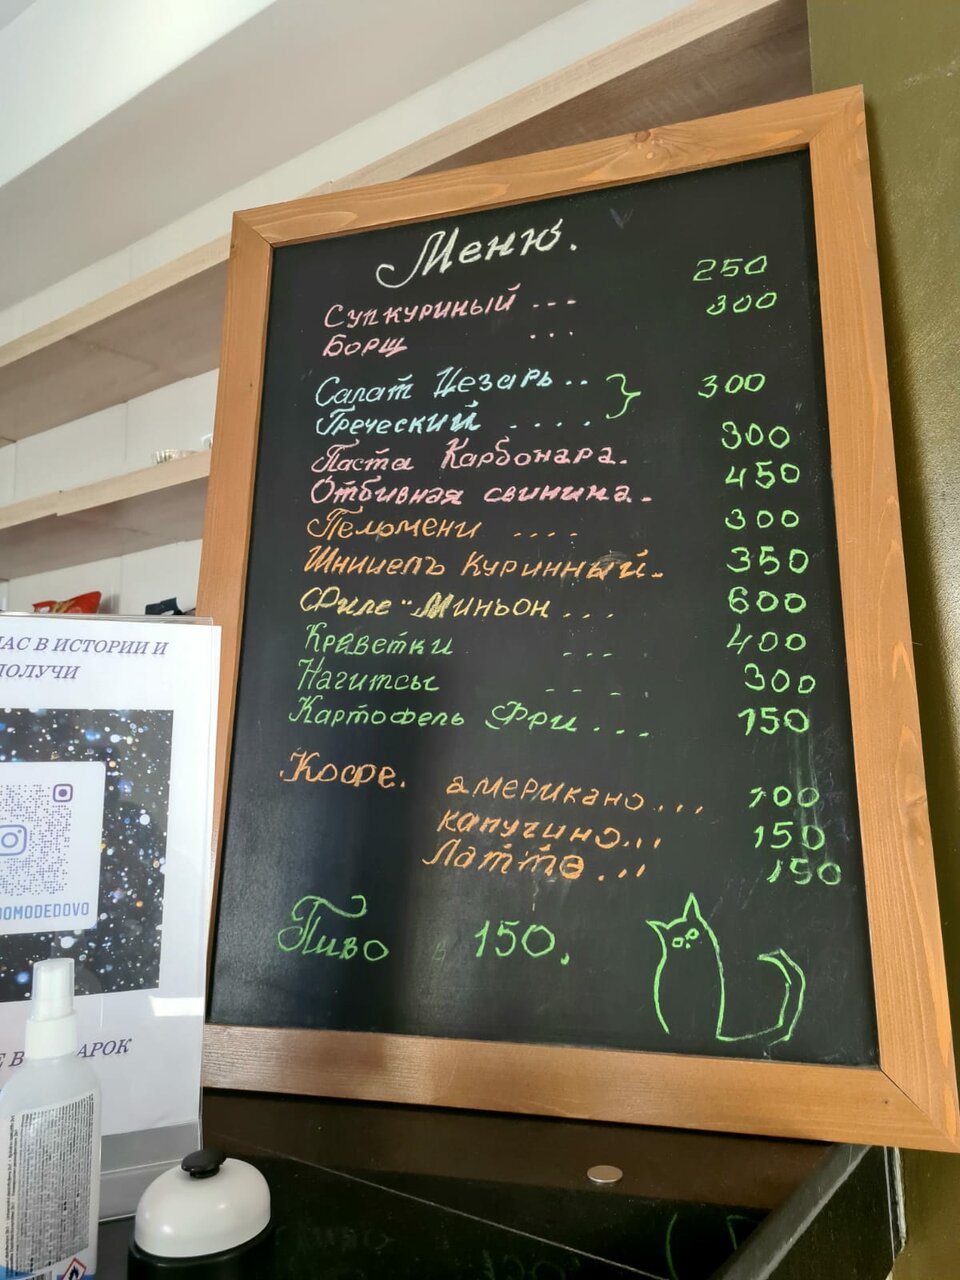 Меню.
Суп куриный ... 250
Борщ ... 300
Салат Цезарь .. } 300
Греческий ....
Паста Карбонара. 300
Отбивная свинина. 450
Пельмени .... 300
Шницель Куринный. 350
Филе-Миньон ... 600
Креветки ... 400
Нагитсы .... 300
Картофель Фри ... 150
Кофе. американо ... 100
капучино ... 150
Латтэ ... 150
Пиво 150.
НАС В ИСТОРИИ И
ПОЛУЧИ
OMODEDOVO